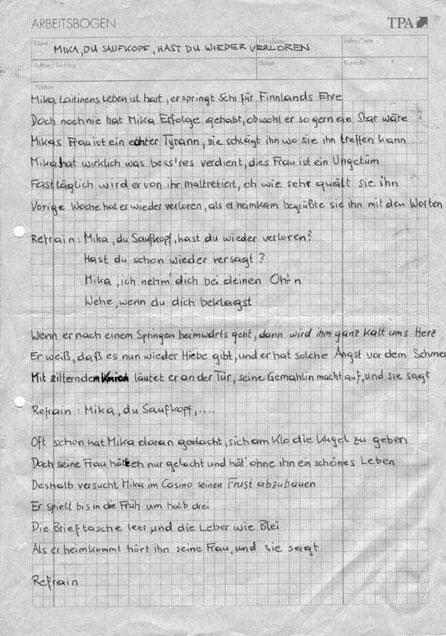 ARBEITSBOGEN
TPA
MIKA, DU SAUFKOPF, HAST DU WIEDER VERLOREN
Mika Laitinens Leben ist hart, er springt Schi für Finnlands Ehre
Doch noch nie hat Mika Erfolge gehabt, obwohl er so gern ein Star wäre
Mikas Frau ist ein echter Tyrann, sie schlägt ihn wo sie ihn treffen kann
Mika hat wirklich was bess'res verdient, dies Frau ist ein Ungetüm
Fast täglich wird er von ihr maltretiert, oh wie sehr quält sie ihn
Vorige Woche hat er wieder verloren, als er heimkam begrüßte sie ihn mit den Worten
Refrain: Mika, du Saufkopf, hast du wieder verloren?
Hast du schon wieder versagt?
Mika, ich nehm' dich bei deinen Ohr'n
Wehe, wenn du dich beklagst
Wenn er nach einem Springen heimwärts geht, dann wird ihm ganz kalt ums Herz
Er weiß, daß es nun wieder Hiebe gibt, und er hat solche Angst vor dem Schme
Mit zitternden läutet er an der Tür, seine Gemahlin macht auf, und sie sagt
Refrain: Mika, du Saufkopf,....
Oft schon hat Mika daran gedacht, sich am Klo die Kugel zu geben
Doch seine Frau hätt nur gelacht und hät' ohne ihn ein schönes Leben
Deshalb versucht Mika im Casino seinen Frust abzubauen
Er spielt bis in die Früh um halb drei
Die Brieftasche leer und die Leber wie Blei
Als er heimkommt hört ihn seine Frau, und sie sagt
Refrain